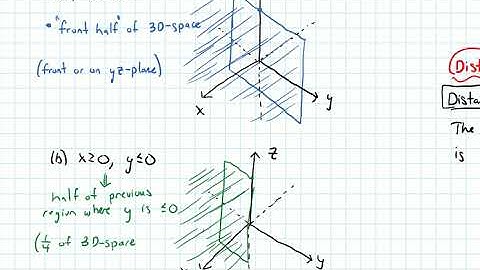 • "front half" of 3D-space
(front or on yz-plane)
x
y
Dist
Dista
The
is
(b) x≥0, y≤0
z
half of previous
region where y is ≤0
(1/4 of 3D-space
y